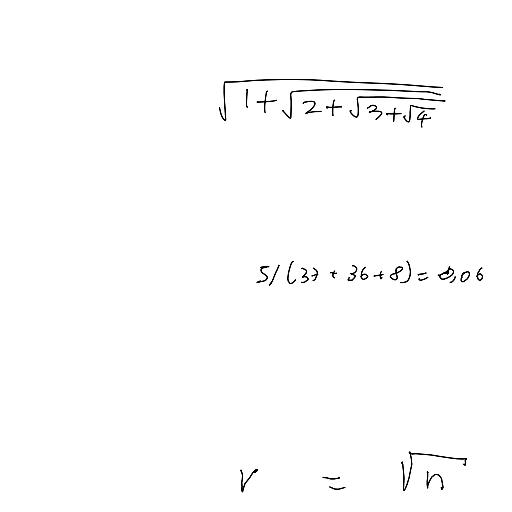 √(1+√(2+√(3+√4)))
51/(37+36+8)=0,06
r = √n